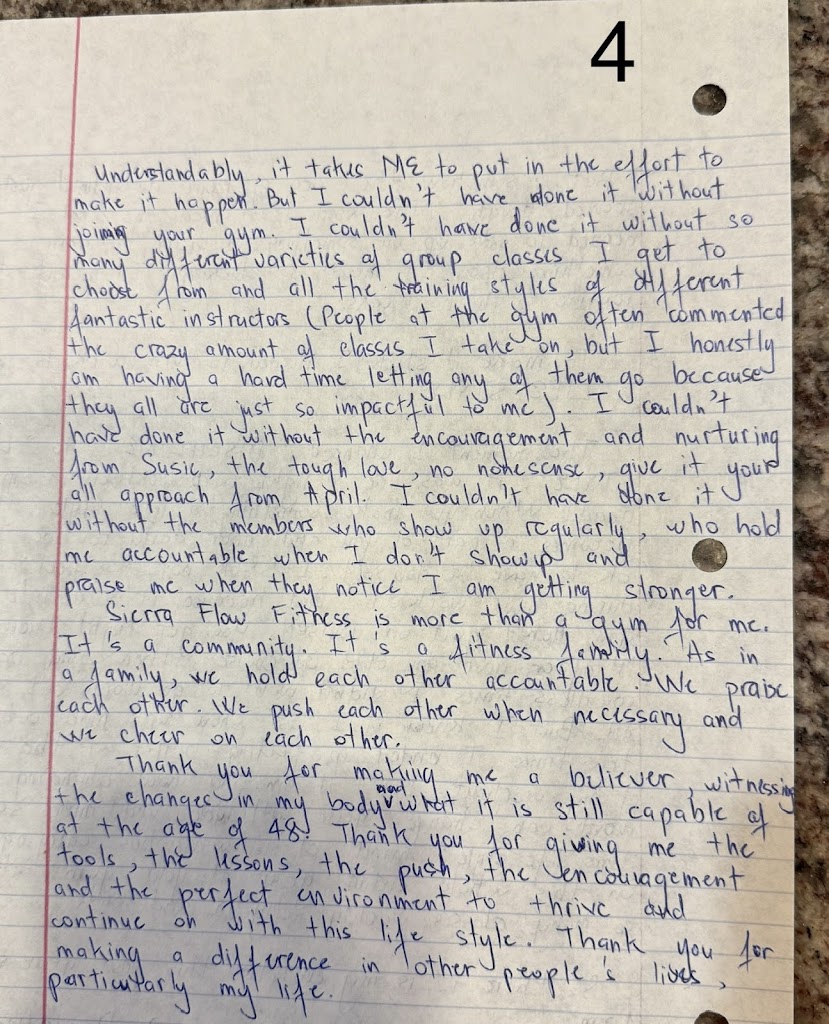 4
Understandably, it takes ME to put in the effort to
make it happen. But I couldn't have done it without
joining your gym. I couldn't have done it without so
many different varieties of group classes I get to
choose from and all the training styles of different
fantastic instructors (People at the gym often commented
the crazy amount of classes I take on, but I honestly
am having a hard time letting any of them go because
they all are just so impactful to me). I couldn't
have done it without the encouragement and nurturing
from Susie, the tough love, no nonesense, give it your
all approach from April. I couldn't have done it
without the members who show up regularly, who hold
me accountable when I don't show up and
praise me when they notice I am getting stronger.
Sierra Flow Fitness is more than a gym for me.
It's a community. It's a fitness family. As in
a family, we hold each other accountable. We praise
each other. We push each other when necessary and
we cheer on each other.
Thank you for making me a believer, witnessing
the changes in my body and what it is still capable of
at the age of 48! Thank you for giving me the
tools, the lessons, the push, the encouragement
and the perfect environment to thrive and
continue on with this life style. Thank you for
making a difference in other people's lives,
particularly my life.